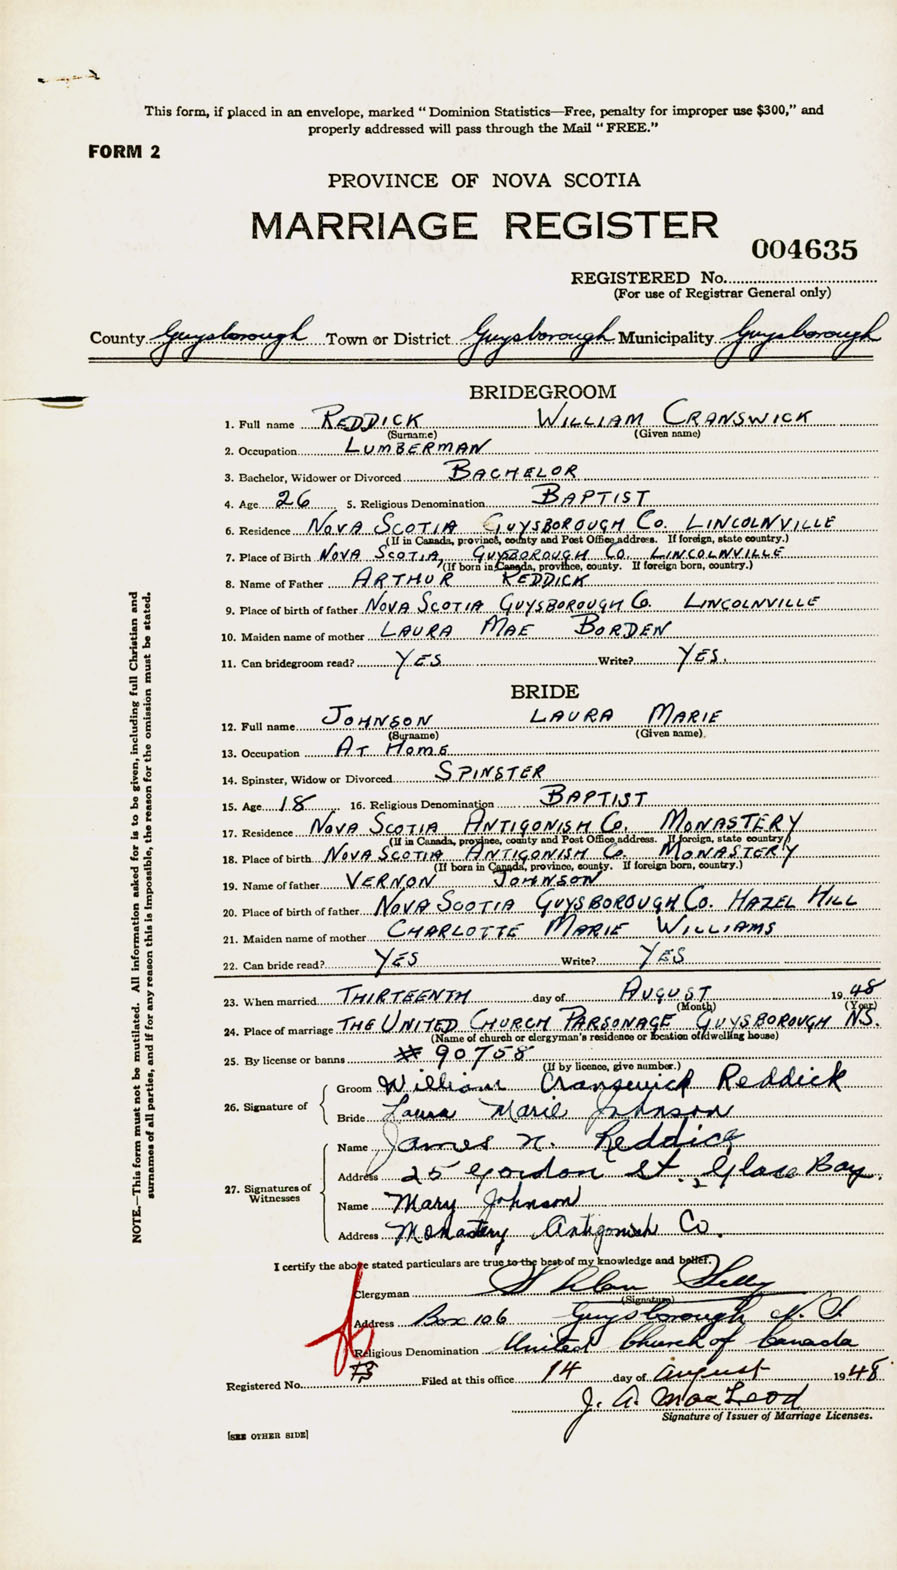 This form, if placed in an envelope, marked “Dominion Statistics—Free, penalty for improper use $300,” and
properly addressed will pass through the Mail “FREE.”
FORM 2
PROVINCE OF NOVA SCOTIA
MARRIAGE REGISTER
004635
REGISTERED No.
(For use of Registrar General only)
County Guysborough Town or District Guysborough Municipality Guysborough
BRIDEGROOM
1. Full name REDDICK WILLIAM CRANSWICK
(Surname) (Given name)
2. Occupation LUMBERMAN
3. Bachelor, Widower or Divorced BACHELOR
4. Age 26 5. Religious Denomination BAPTIST
6. Residence NOVA SCOTIA GUYSBOROUGH CO. LINCOLNVILLE
(If in Canada, province, county and Post Office address. If foreign, state country.)
7. Place of Birth NOVA SCOTIA GUYSBOROUGH CO. LINCOLNVILLE
(If born in Canada, province, county. If foreign born, country.)
8. Name of Father ARTHUR REDDICK
9. Place of birth of father NOVA SCOTIA GUYSBOROUGH CO. LINCOLNVILLE
10. Maiden name of mother LAURA MAE BORDEN
11. Can bridegroom read? YES Write? YES.
BRIDE
12. Full name JOHNSON LAURA MARIE
(Surname) (Given name)
13. Occupation AT HOME
14. Spinster, Widow or Divorced SPINSTER
15. Age 18 16. Religious Denomination BAPTIST
17. Residence NOVA SCOTIA ANTIGONISH CO. MONASTERY
(If in Canada, province, county and Post Office address. If foreign, state country.)
18. Place of birth NOVA SCOTIA ANTIGONISH CO. MONASTERY
(If born in Canada, province, county. If foreign born, country.)
19. Name of father VERNON JOHNSON
20. Place of birth of father NOVA SCOTIA GUYSBOROUGH CO. HAZEL HILL
21. Maiden name of mother CHARLOTTE MARIE WILLIAMS
22. Can bride read? YES Write? YES
23. When married THIRTEENTH day of AUGUST 1948
(Month) (Year)
24. Place of marriage THE UNITED CHURCH PARSONAGE GUYSBOROUGH NS.
(Name of church or clergyman's residence or location of dwelling house)
25. By license or banns # 90758
(If by licence, give number.)
26. Signature of
Groom William Cranswick Reddick
Bride Laura Marie Johnson
27. Signatures of Witnesses
Name James N. Reddick
Address 25 Gordon St., Glace Bay.
Name Mary Johnson
Address Monastery Antigonish Co.
I certify the above stated particulars are true to the best of my knowledge and belief.
Clergyman
(Signature)
Address Box 106 Guysborough N.S.
Religious Denomination United Church of Canada
Registered No. 13 Filed at this office 14 day of August 1948
J. A. MacLeod
Signature of Issuer of Marriage Licenses.
[SEE OTHER SIDE]
NOTE.—This form must not be mutilated. All information asked for is to be given, including full Christian and
surnames of all parties, and if for any reason this is impossible, the reason for the omission must be stated.